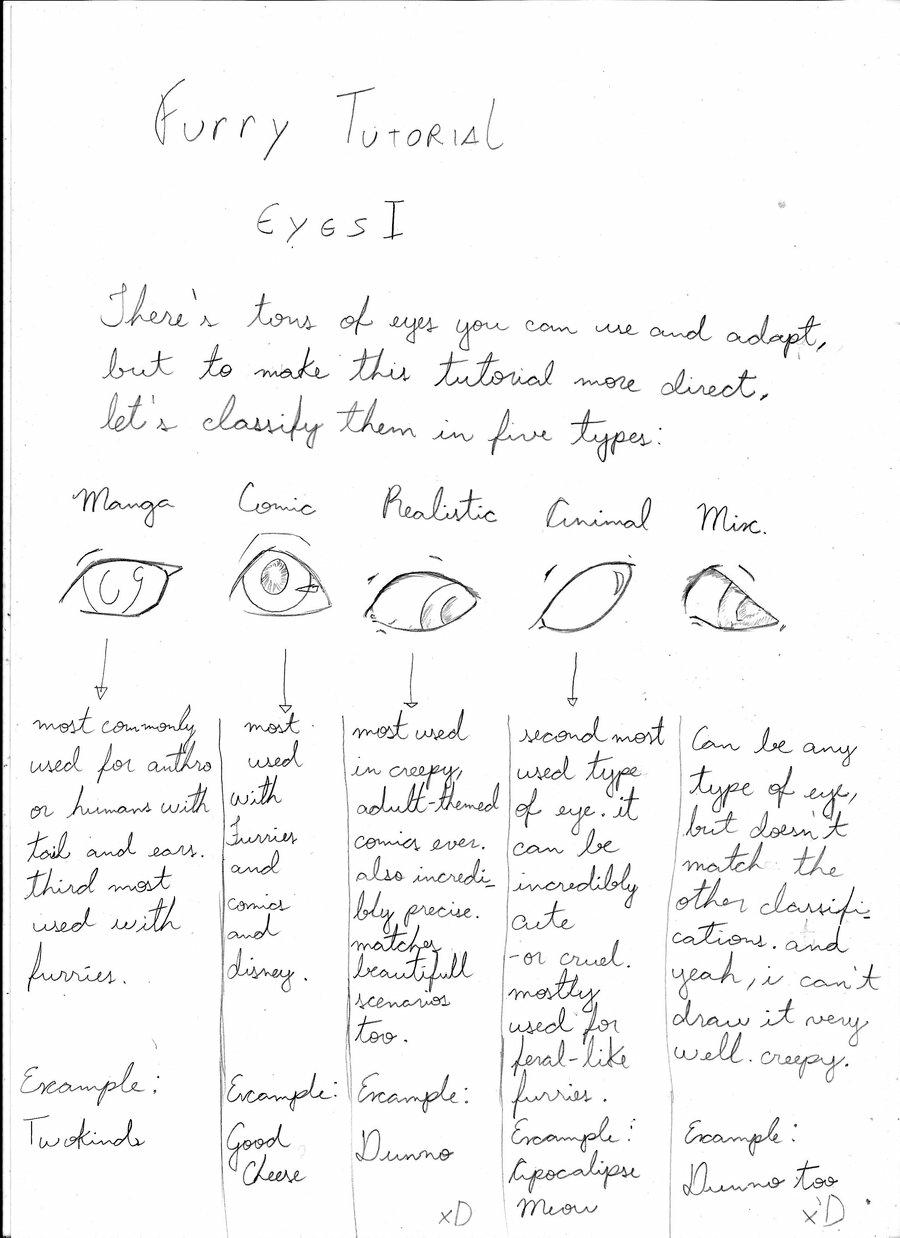 Furry Tutorial
Eyes I
There's tons of eyes you can use and adapt,
but to make this tutorial more direct,
let's classify them in five types:
Manga
Comic
Realistic
Animal
Misc.
most commonly
used for anthro
or humans with
tail and ears.
third most
used with
furries.
Example:
Twokinds
most
used
with
Furries
and
comics
and
disney.
Example:
Good
Cheese
most used
in creepy,
adult-themed
comics ever.
also incredi-
bly precise.
matches
beautifull
scenarios
too.
Example:
Dunno
xD
second most
used type
of eye. it
can be
incredibly
cute
-or cruel.
mostly
used for
feral-like
furries.
Example:
Apocalipse
Meow
Can be any
type of eye,
but doesn't
match the
other classifi-
cations. and
yeah, i can't
draw it very
well. creepy.
Example:
Dunno too
x'D